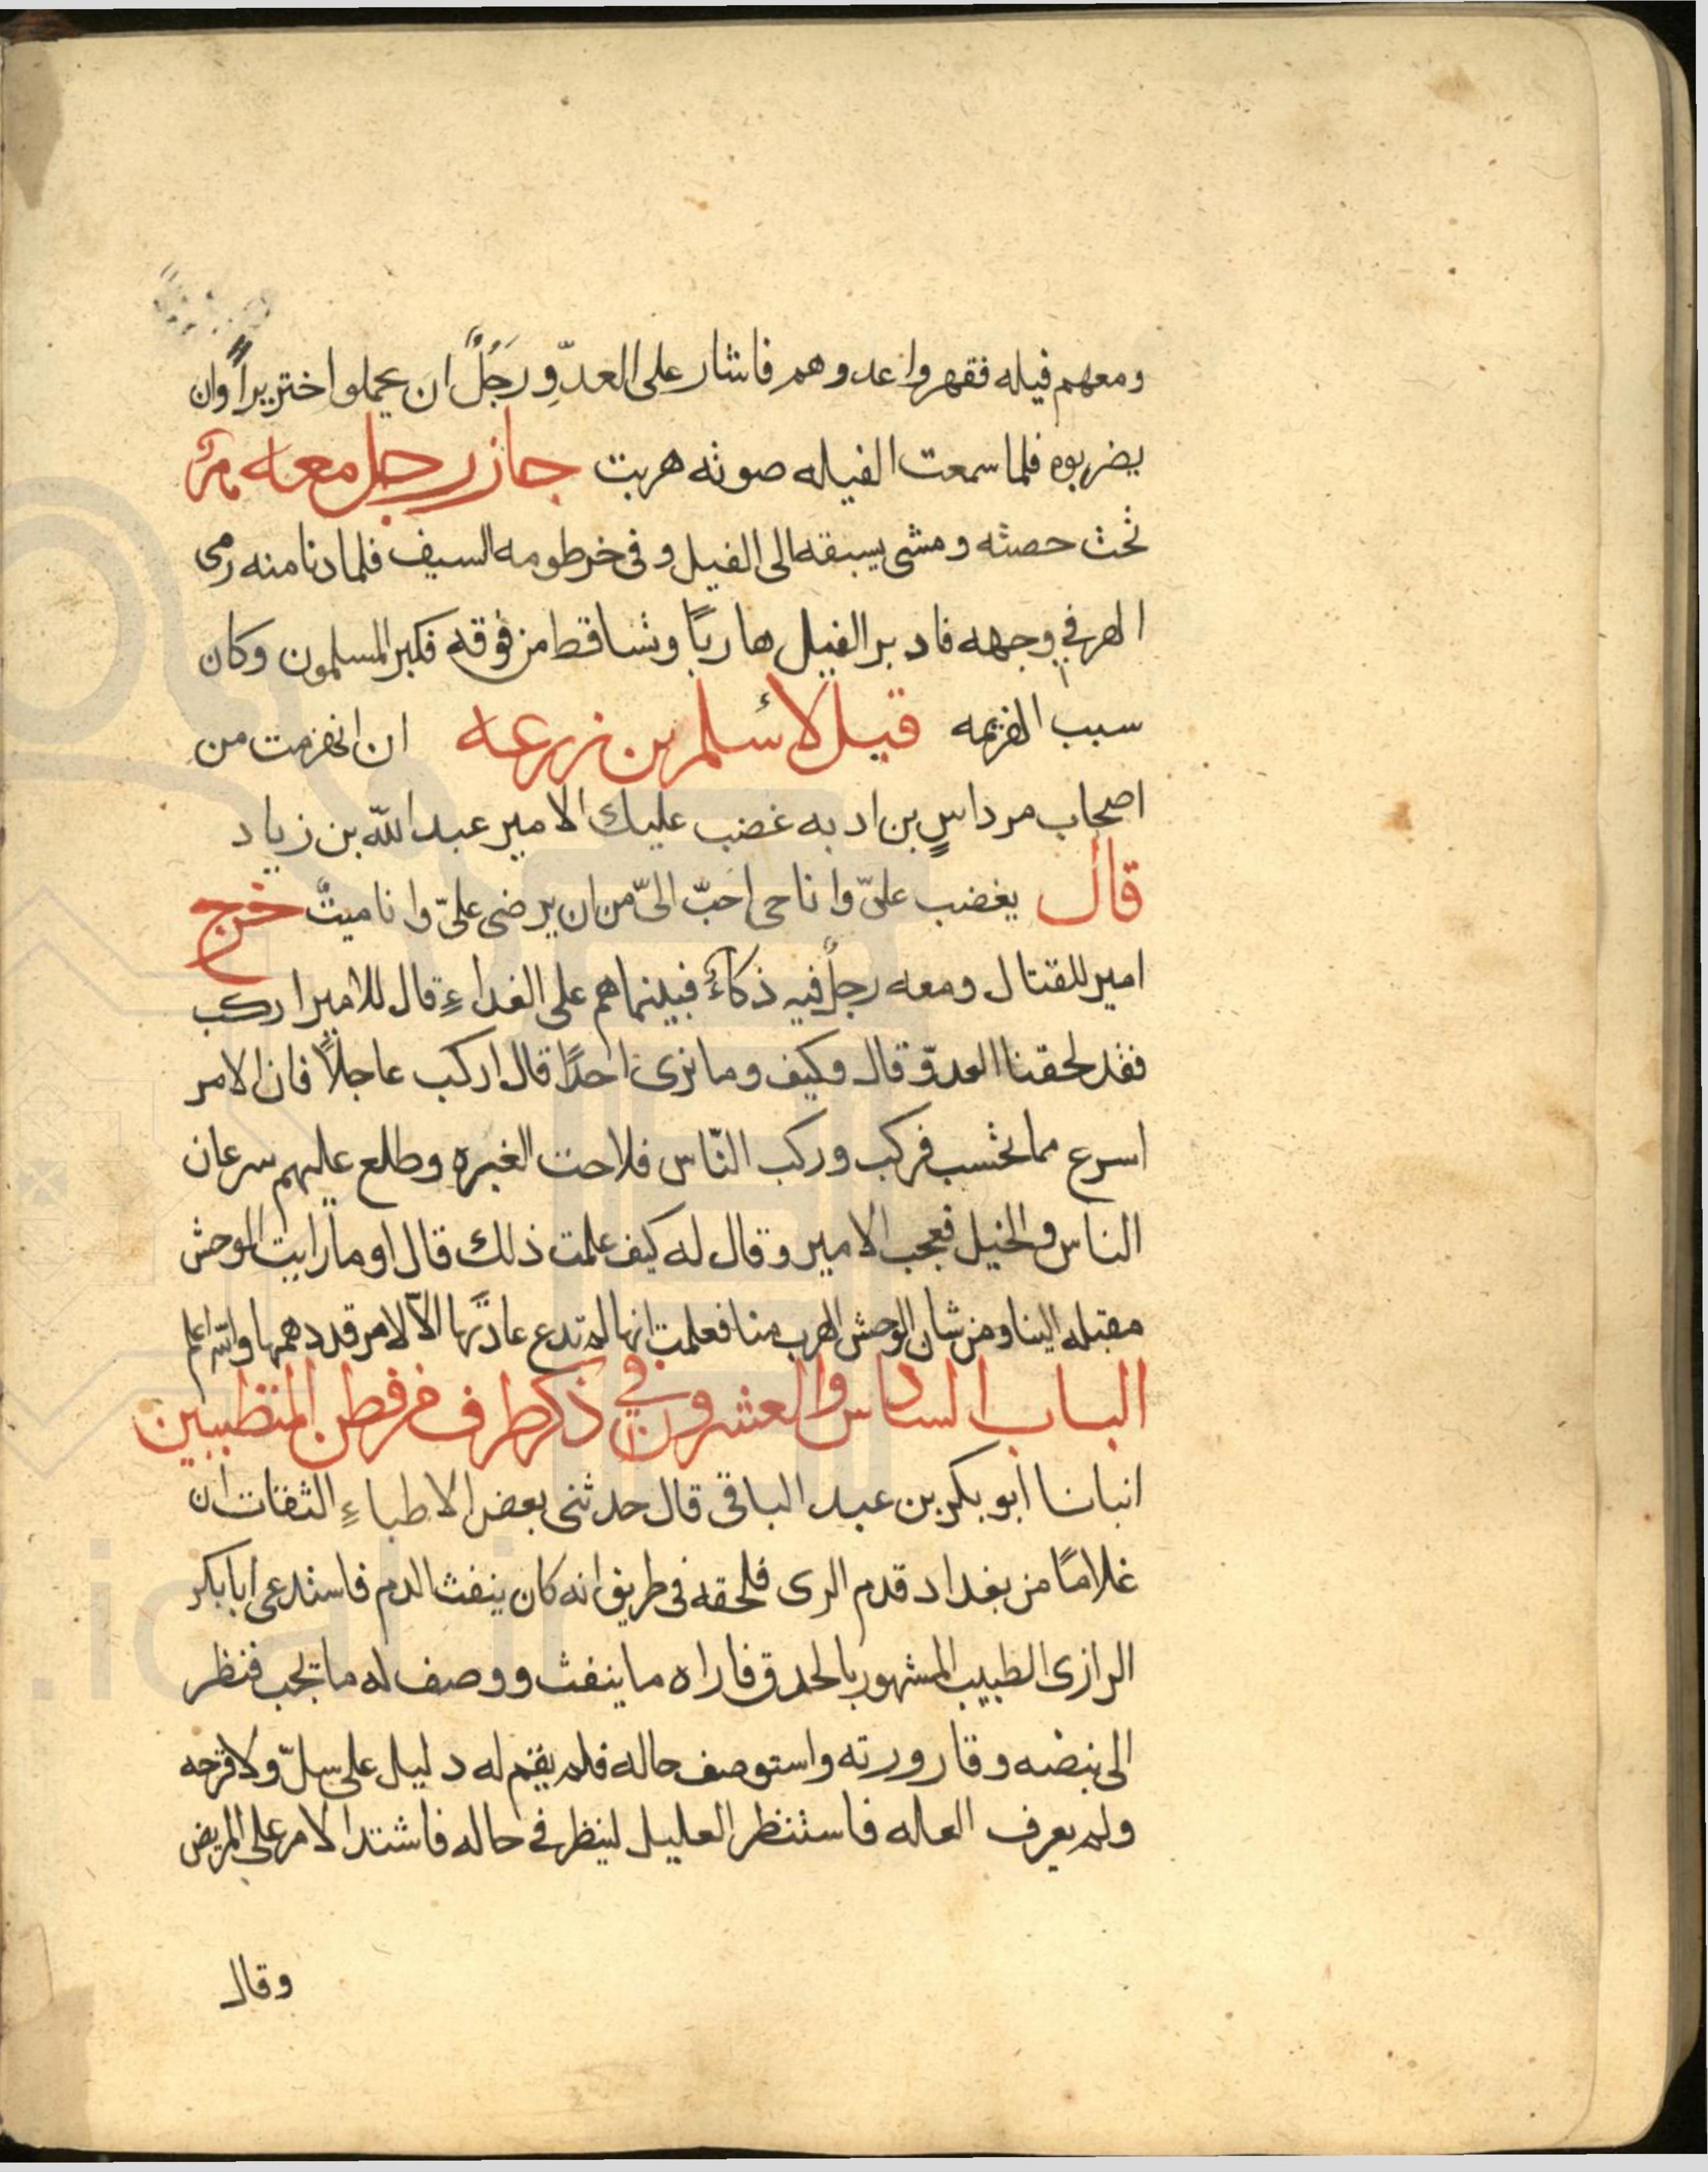 ومعهم فيله فقهروا عدوهم فاشار على العدّوِ رَجُلٌ ان يحملوا خنزيراً وان
يضربوه فلما سمعت الفيله صوته هربت جاز رجل معه هرّ
تحت حصنه ومشى بسيفه الى الفيل و فى خرطومه السيف فلما دنا منه رمى
الهر في وجهه فادبر الفيل هاربًا وتساقط من فوقه فكبر المسلمون وكان
سبب الهزيمه قيل لأسلم بن زرعه ان انهزمت من
اصحاب مرداسٍ بن اديه غضب عليك الامير عبد الله بن زياد
قال يغضب علىّ وانا حى احبّ الىّ من ان يرضى علىّ وانا ميتٌ خرج
امير للقتال ومعه رجلٌ فيه ذكاءٌ فبينما هم على الغداءِ قال للامير اركب
فقد لحقنا العدوّ قال وكيف وما نرى احدًا قال اركب عاجلاً فان الامر
اسرع مما تحسب فركب وركب النّاس فلاحت الغبره وطلع عليهم سرعان
الناس والخيل فعجب الامير وقال له كيف علمت ذلك قال او ما رايت الوحش
مقبله الينا ومن شان الوحش الهرب منا فعلمت انها لم تدع عادتها الّا لامر قد دهمها والله اعلم
الباب السادس والعشرون في ذكر طرف من فطن المتطببين
انبانا ابو بكر بن عبد الباقى قال حدثنى بعض الاطباءِ الثقات ان
غلامًا من بغداد قدم الرى فلحقه فى طريق انه كان ينفث الدم فاستدعى ابا بكر
الرازى الطبيب المشهور بالحدق فاراه ما ينفث ووصف له ما تجب فنظر
الى نبضه وقارورته واستوصف حاله فلم يقم له دليل على سلّ ولا قرحه
ولم يعرف العله فاستنظر العليل لينظر فى حاله فاشتد الامر على المريض
وقال